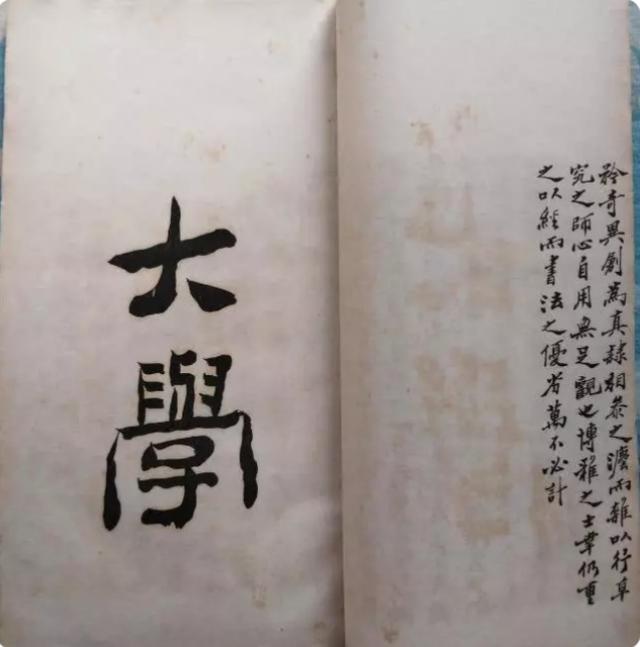 矜奇異創為真隸相參之灋而雜以行草
究之師心自用無足觀也博雅之士幸仍重
之以經而書法之優劣萬不必計
大學